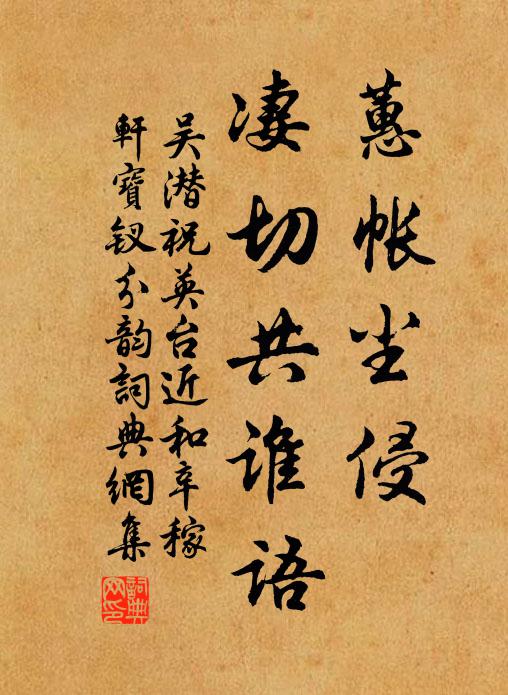 蕙帐尘侵
凄切共谁语
吴潜祝英台近和辛稼
轩寶钗分韵詞典網集
詞典网印